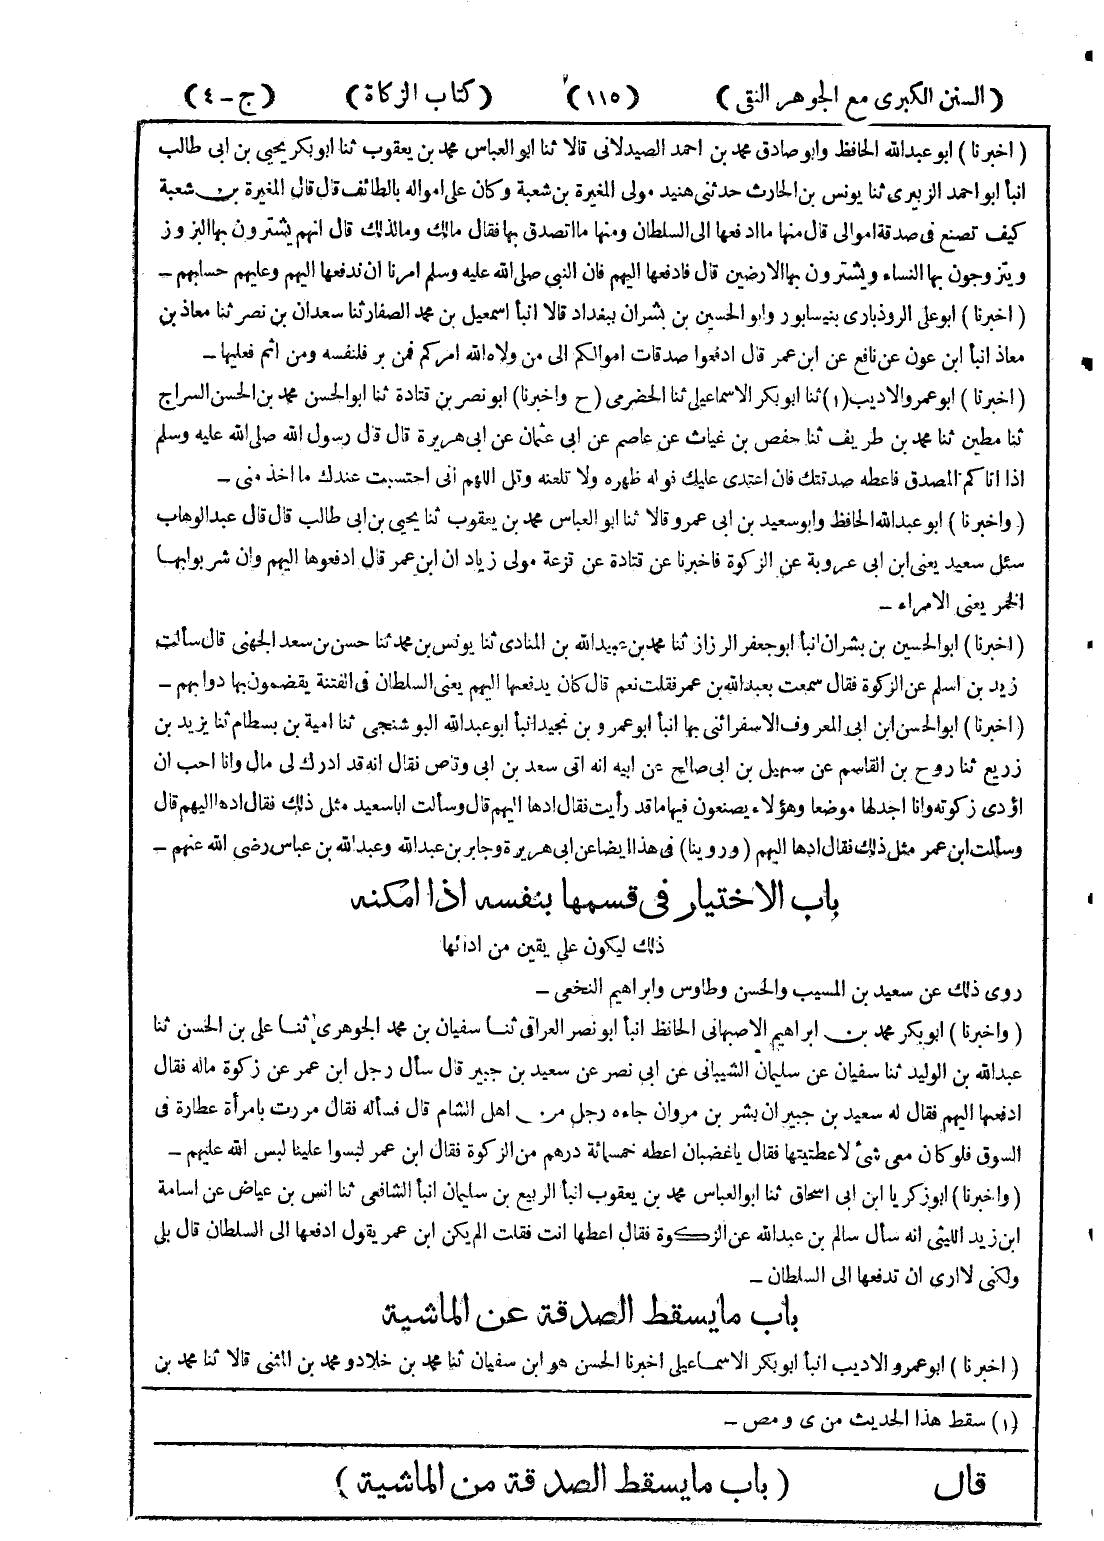 (السنن الكبرى مع الجوهر النقى) (١١٥) (كتاب الزكاة) (ج-٤)
(اخبرنا) ابو عبدالله الحافظ وابو صادق محمد بن احمد الصيدلانى قالا ثنا ابو العباس محمد بن يعقوب ثنا ابو بكر يحيى بن ابى طالب
انبأ ابو احمد الزبيرى ثنا يونس بن الحارث حدثنى هنيد مولى المغيرة بن شعبة وكان على امواله بالطائف قال قال المغيرة بن شعبة
كيف تصنع فى صدقة اموالى قال منها ما ادفعها الى السلطان ومنها ما اتصدق بها فقال مالك ومالذلك قال انهم يشترون بها البزوز
ويتزوجون بها النساء ويشترون بها الارضين قال فادفعها اليهم فان النبى صلى الله عليه وسلم امرنا ان ندفعها اليهم وعليهم حسابهم -
(اخبرنا) ابو على الروذبارى بنيسابور وابو الحسين بن بشران ببغداد قالا انبأ اسمعيل بن محمد الصفار ثنا سعدان بن نصر ثنا معاذ بن
معاذ انبأ ابن عون عن نافع عن ابن عمر قال ادفعوا صدقات اموالكم الى من ولاه الله امركم فمن بر فلنفسه ومن اثم فعليها -
(اخبرنا) ابو عمرو الاديب (١) ثنا ابو بكر الاسماعيلى ثنا الحضرمى (ح واخبرنا) ابو نصر بن قتادة ثنا ابو الحسن محمد بن الحسن السراج
ثنا مطين ثنا محمد بن طريف ثنا حفص بن غياث عن عاصم عن ابى عثمان عن ابى هريرة قال قال رسول الله صلى الله عليه وسلم
اذا اتاكم المصدق فاعطه صدقتك فان اعتدى عليك فوله ظهره ولا تلعنه وقل اللهم انى احتسبت عندك ما اخذ منى -
(واخبرنا) ابو عبدالله الحافظ وابو سعيد بن ابى عمرو قالا ثنا ابو العباس محمد بن يعقوب ثنا يحيى بن ابى طالب قال قال عبد الوهاب
سئل سعيد يعنى ابن ابى عروبة عن الزكوة فاخبرنا عن قتادة عن قزعة مولى زياد ان ابن عمر قال ادفعوها اليهم وان شربوا بها
الخمر يعنى الامراء -
(اخبرنا) ابو الحسين بن بشران انبأ ابو جعفر الرزاز ثنا محمد بن عبيدالله بن المنادى ثنا يونس بن محمد ثنا حسن بن سعد الجهنى قال سألت
زيد بن اسلم عن الزكوة فقال سمعت بعبدالله بن عمر فقلت نعم قال كان يدفعها اليهم يعنى السلطان فى الفتنة يقضمون بها دوابهم -
(اخبرنا) ابو الحسن ابن ابى المعروف الاسفرائنى بها انبأ ابو عمرو بن نجيد انبأ ابو عبدالله البوشنجى ثنا امية بن بسطام ثنا يزيد بن
زريع ثنا روح بن القاسم عن سهيل بن ابى صالح عن ابيه انه اتى سعد بن ابى وقاص فقال انه قد ادرك لى مال وانا احب ان
اؤدى زكوته وانا اجد لها موضعا وهؤلاء يصنعون فيها ما قد رأيت فقال ادها اليهم قال وسألت ابا سعيد مثل ذلك فقال ادها اليهم قال
وسألت ابن عمر مثل ذلك فقال ادها اليهم (وروينا) فى هذا ايضا عن ابى هريرة وجابر بن عبدالله وعبدالله بن عباس رضى الله عنهم -
باب الاختيار فى قسمها بنفسه اذا امكنه
ذلك ليكون على يقين من ادائها
روى ذلك عن سعيد بن المسيب والحسن وطاوس وابراهيم النخعى -
(واخبرنا) ابو بكر محمد بن ابراهيم الاصبهانى الحافظ انبأ ابو نصر العراقى ثنا سفيان بن محمد الجوهرى ثنا على بن الحسن ثنا
عبدالله بن الوليد ثنا سفيان عن سليمان الشيبانى عن ابى نصر عن سعيد بن جبير قال سأل رجل ابن عمر عن زكوة ماله فقال
ادفعها اليهم فقال له سعيد بن جبير ان بشر بن مروان جاءه رجل من اهل الشام قال فسأله فقال مررت بامرأة عطارة فى
السوق فلو كان معى شئ لاعطيتها فقال ياغضبان اعطه خمسمائة درهم من الزكوة فقال ابن عمر لبسوا علينا لبس الله عليهم -
(واخبرنا) ابو زكريا ابن ابى اسحاق ثنا ابو العباس محمد بن يعقوب انبأ الربيع بن سليمان انبأ الشافعى ثنا انس بن عياض عن اسامة
ابن زيد الليثى انه سأل سالم بن عبدالله عن الزكوة فقال اعطها انت فقلت الم يكن ابن عمر يقول ادفعها الى السلطان قال بلى
ولكنى لا ارى ان تدفعها الى السلطان -
باب مايسقط الصدقة عن الماشية
(اخبرنا) ابو عمرو الاديب انبأ ابو بكر الاسماعيلى اخبرنا الحسن هو ابن سفيان ثنا محمد بن خلاد ومحمد بن المثنى قالا ثنا محمد بن
(١) سقط هذا الحديث من ى و مص -
قال (باب مايسقط الصدقة من الماشية)